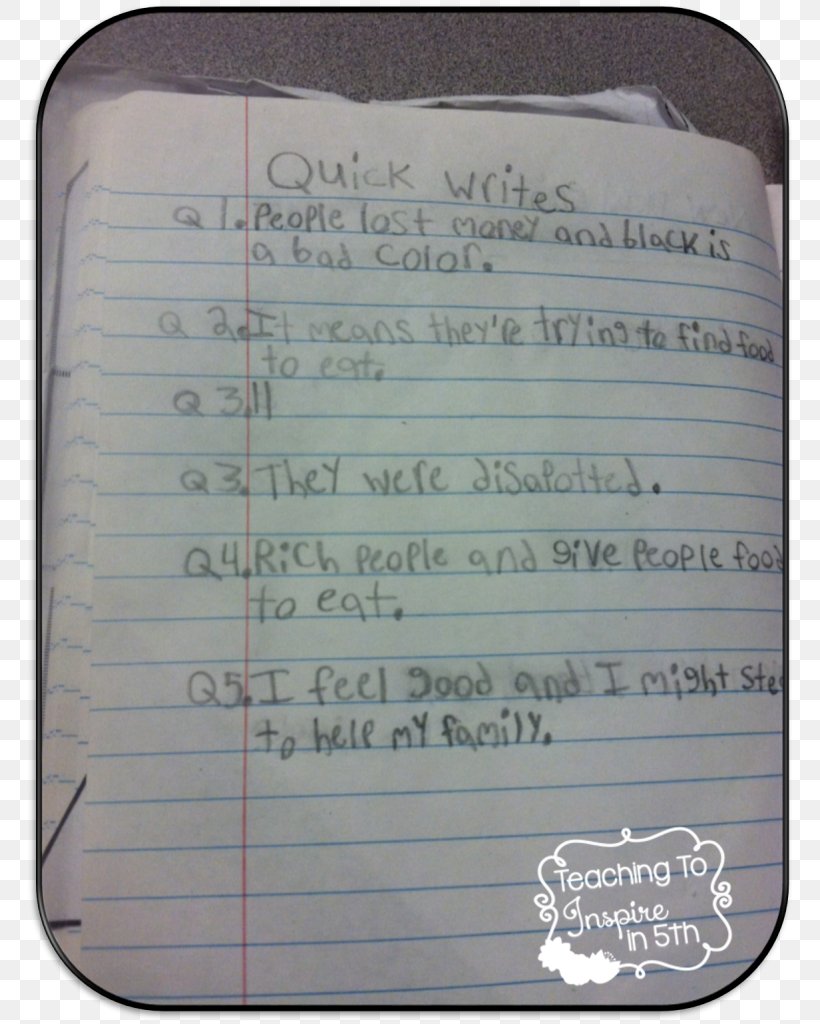 Quick Writes
Q 1. People lost money and black is
a bad color.
Q 2. It means they're trying to find food
to eat.
Q 3. 11
Q 3. They were disapotted.
Q4. Rich people and give people food
to eat.
Q5. I feel good and I might ste
to help my family.
Teaching To
Inspire
in 5th